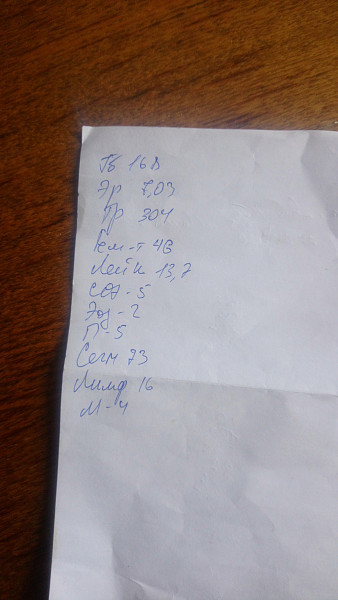 Гб 168
Эр 5,03
Тр 304
Гем-т 48
Лейк 13,7
СОЭ - 5
Эоз - 2
П - 5
Сегм 73
Лимф 16
М - 4